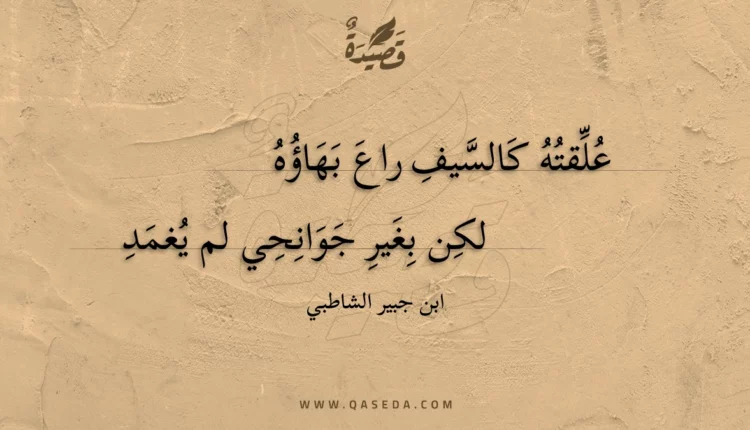 قَصِيدَةٌ
عُلِّقتُهُ كَالسَّيفِ راعَ بَهَاؤُهُ
لكِن بِغَيرِ جَوَانِحِي لم يُغمَدِ
ابن جبير الشاطبي
WWW.QASEDA.COM